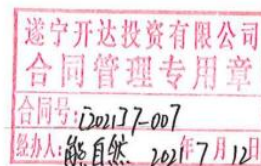 遂宁开达投资有限公司
合同管理专用章
合同号:i202137-007
经办人:熊自然 2021年7月12日